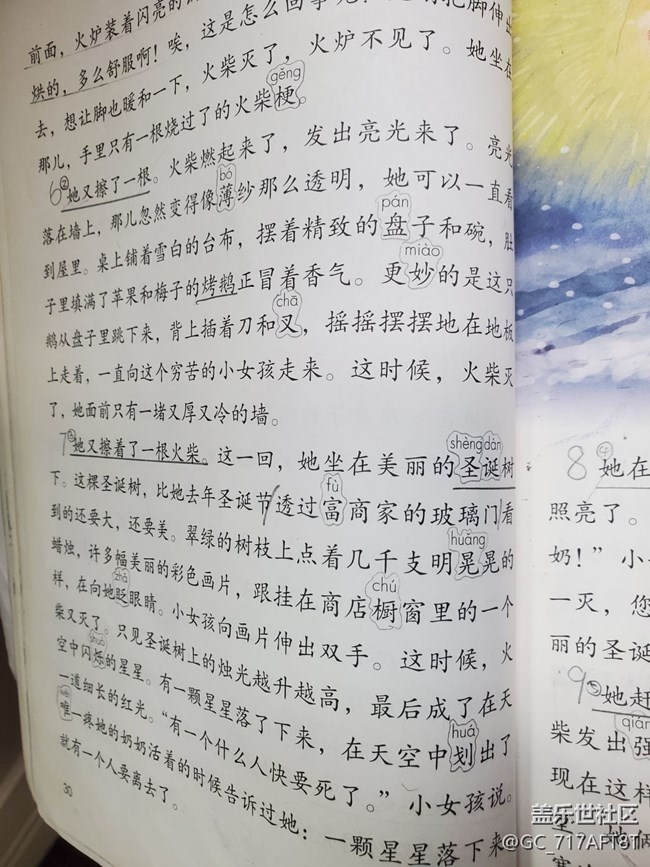 前面，火炉装着闪亮的
烘的，多么舒服啊！唉，这是怎么回事
去，想让脚也暖和一下，火柴灭了，火炉不见了。她坐在
gěng
那儿，手里只有一根烧过了的火柴梗。
6 ② 她又擦了一根。火柴燃起来了，发出亮光来了。亮光
bó
落在墙上，那儿忽然变得像薄纱那么透明，她可以一直看
pán
到屋里。桌上铺着雪白的台布，摆着精致的盘子和碗，肚
miào
子里填满了苹果和梅子的烤鹅正冒着香气。更妙的是这只
chā
鹅从盘子里跳下来，背上插着刀和叉，摇摇摆摆地在地板
上走着，一直向这个穷苦的小女孩走来。这时候，火柴灭
了，她面前只有一堵又厚又冷的墙。
shèng dàn
7 ③ 她又擦着了一根火柴。这一回，她坐在美丽的圣诞树
fù
下。这棵圣诞树，比她去年圣诞节透过富商家的玻璃门看
huǎng
到的还要大，还要美。翠绿的树枝上点着几千支明晃晃的
chú
蜡烛，许多幅美丽的彩色画片，跟挂在商店橱窗里的一个
zhǎ
样，在向她眨眼睛。小女孩向画片伸出双手。这时候，火
柴又灭了。只见圣诞树上的烛光越升越高，最后成了在天
shuò
空中闪烁的星星。有一颗星星落了下来，在天空中划出了
huá
一道细长的红光。“有一个什么人快要死了。”小女孩说。
唯一疼她的奶奶活着的时候告诉过她：一颗星星落下来
就有一个人要离去了。
30
8 ④ 她在
照亮了。
奶！”小
一灭，您
丽的圣诞
9 ⑤ 她赶
qiáng
柴发出强
现在这样
盖乐世社区
@GC_717AFT8T